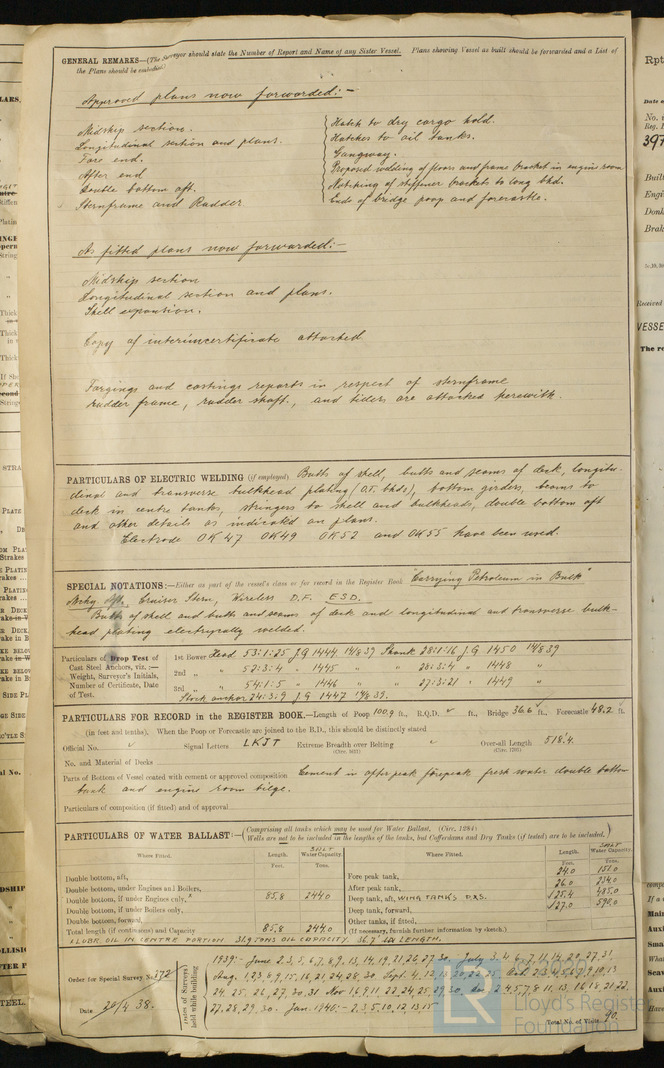 GENERAL REMARKS—(The Surveyor should state the Number of Report and Name of any Sister Vessel. Plans showing Vessel as built should be forwarded and a List of
the Plans should be embodied.)
Approved plans now forwarded:-
Midship section.
Longitudinal section and plans.
Fore end.
After end
Double bottom aft.
Sternframe and Rudder
Hatch to dry cargo hold.
Hatches to oil tanks.
Gangway.
Proposed welding of floors and frame bracket in engine room
Notching of stiffener brackets to long bhd.
Ends of bridge poop and forecastle.
As fitted plans now forwarded:-
Midship section
Longitudinal section and plans.
Shell expansion.
Copy of interimcertificate attached
Forgings and castings reports in respect of sternframe,
rudder frame, rudder shaft, and tillers are attached herewith.
PARTICULARS OF ELECTRIC WELDING (if employed) Butts of shell, butts and seams of deck, longitu-
dinal and transverse bulkhead plating (O.T. bhds), bottom girders, beams to
deck in centre tanks, stringers to shell and bulkheads, double bottom aft
and other details as indicated on plans.
Electrode OK 47 OK 49 OK 52 and OK 55 have been used.
SPECIAL NOTATIONS:—Either as part of the vessel's class or for record in the Register Book "Carrying Petroleum in Bulk"
Mchy Aft. Cruiser Stern, Wireless D.F. E.S.D.
Butts of shell and butts and seams of deck and longitudinal and transverse bulk-
head plating electrically welded.
Particulars of Drop Test of
Cast Steel Anchors, viz.:—
Weight, Surveyor's Initials,
Number of Certificate, Date
of Test.
1st Bower Head 53:1:25 J.G 1444 14/8 39 Shank 28:1:16 J.G 1450 14/8 39
2nd " 52:3:4 " 1445 " " 28:3:4 " 1448 "
3rd " 54:1:5 " 1446 " " 27:3:21 " 1449 "
Stock anchor 24:3:9 J.G 1447 14/8 39.
PARTICULARS FOR RECORD in the REGISTER BOOK.—Length of Poop 100.9 ft., R.Q.D. ft., Bridge 36.6 ft., Forecastle 48.2 ft.
(in feet and tenths). When the Poop or Forecastle are joined to the B.D., this should be distinctly stated
Official No. Signal Letters LKJT Extreme Breadth over Belting Over-all Length 518.4
No. and Material of Decks
Parts of Bottom of Vessel coated with cement or approved composition Cement in after peak forepeak fresh water double bottom
tank and engine room bilge.
Particulars of composition (if fitted) and of approval
PARTICULARS OF WATER BALLAST:—(Comprising all tanks which may be used for Water Ballast. (Circ. 1284)
Wells are not to be included in the lengths of the tanks, but Cofferdams and Dry Tanks (if tested) are to be included.)
Where Fitted. Length. SALT Water Capacity. Where Fitted. Length. SALT Water Capacity.
Feet. Tons. Feet. Tons.
Double bottom, aft,
Double bottom, under Engines and Boilers,
Double bottom, if under Engines only, 85.8 244.0
Double bottom, if under Boilers only,
Double bottom, forward,
Total length (if continuous) and Capacity 85.8 244.0
Fore peak tank, 24.0 151.0
After peak tank, 26.0 234.0
Deep tank, aft, WING TANKS P&S. 25.4 485.0
Deep tank, forward, 27.0 590.0
Other tanks, if fitted,
(If necessary, furnish further information by sketch.)
LUBR. OIL IN CENTRE PORTION 31.9 TONS OIL CAPACITY. 36.7' LENGTH.
Order for Special Survey No. 172
Date 20/4 38.
Dates of Surveys held while building
1939:- June 2,3,5,6,7,8,9,13,14,19,21,26,27,30. July 3,4,6,7,11,14,20,27,31,
Aug. 1,2,3,8,9,15,16,21,24,28,30. Sept. 4,12,13,20,22,25. Oct. 2,3,4,5,6,7,9,10,13
24,25,26,27,30,31 Nov. 1,6,9,11,22,24,25,29,30. Dec. 2,4,5,7,8,11,13,16,18,21,22,
27,28,29,30. Jan. 1940:- 2,3,5,10,12,13,15
Total No. of Visits 90.
Lloyd's Register
Foundation